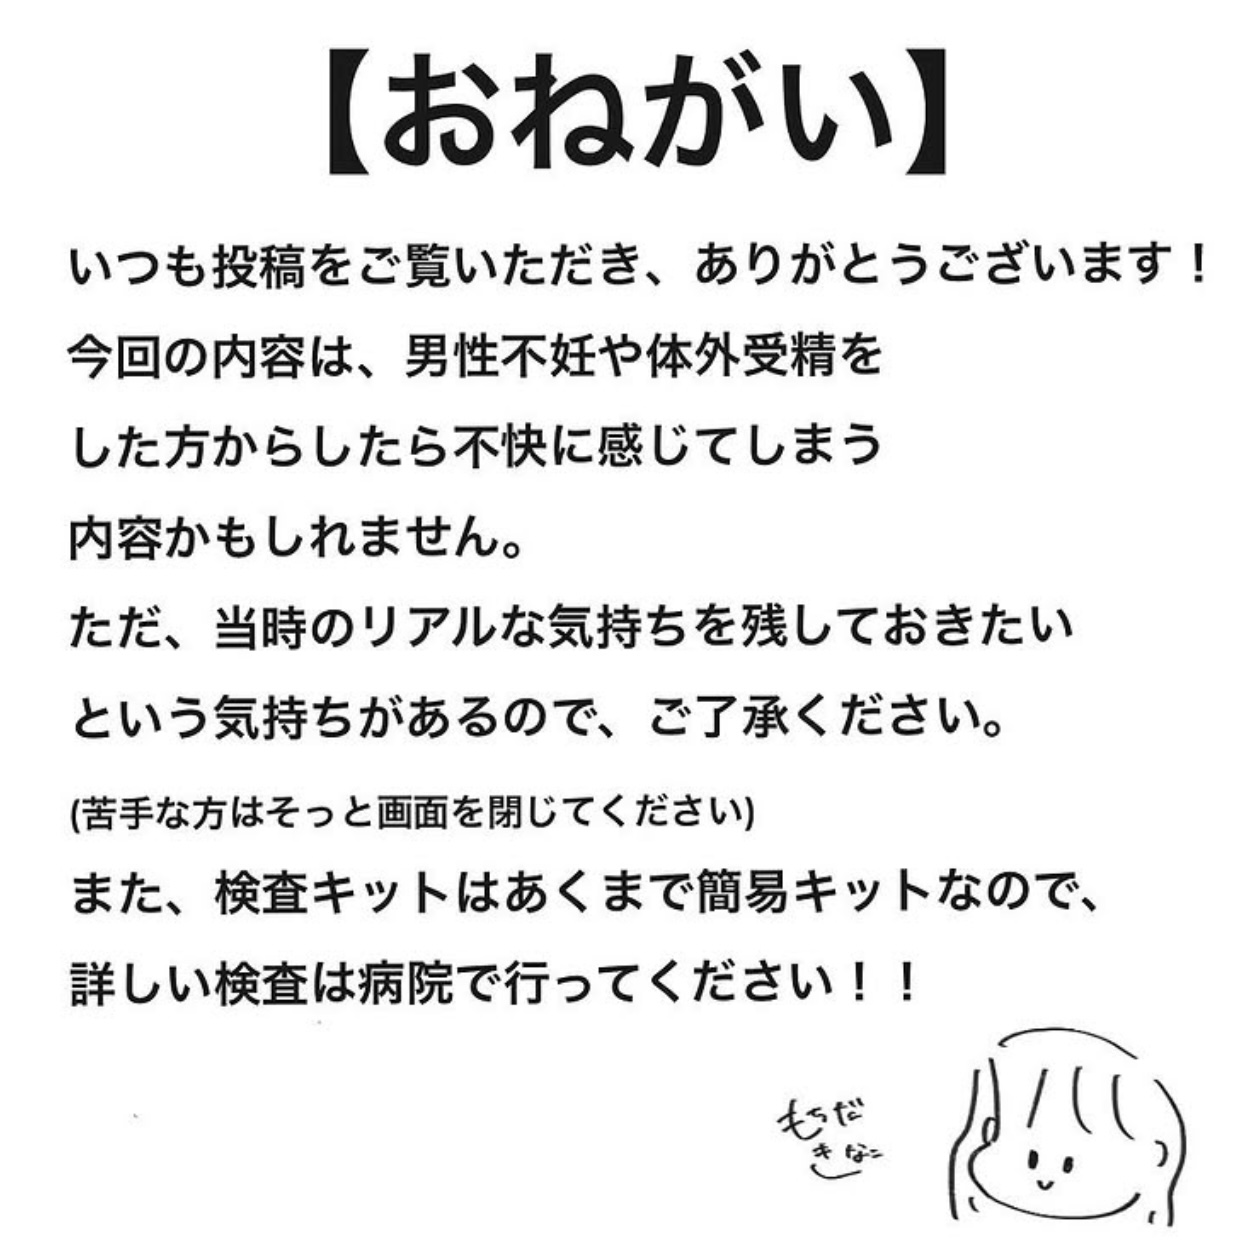 【おねがい】
いつも投稿をご覧いただき、ありがとうございます！
今回の内容は、男性不妊や体外受精を
した方からしたら不快に感じてしまう
内容かもしれません。
ただ、当時のリアルな気持ちを残しておきたい
という気持ちがあるので、ご了承ください。
(苦手な方はそっと画面を閉じてください)
また、検査キットはあくまで簡易キットなので、
詳しい検査は病院で行ってください！！
もちだ
きなこ